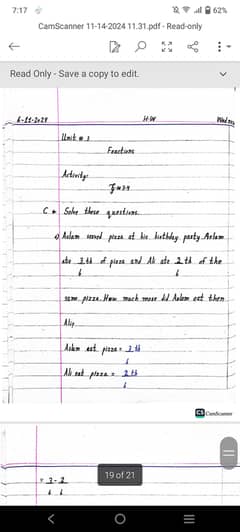 7:17 62%
CamScanner 11-14-2024 11.31.pdf - Read-only
Read Only - Save a copy to edit.
6-11-2024 H.W
Unit # 3
Fractions
Activity:
C * Solve these questions.
Aslam served pizza at his birthday party. Aslam
ate 3 th of pizza and Ali ate 2 th of the
6 6
same pizza. How much more did Aslam eat then
Aliy
Aslam eat pizza = 3 th
6
Ali eat pizza = 2 th
6
CS CamScanner
19 of 21
= 3 - 2
6 6